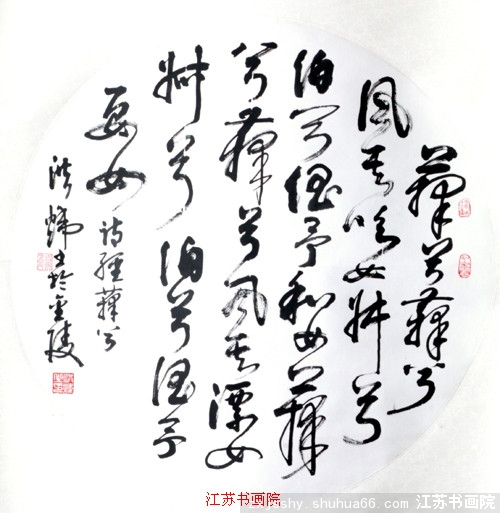 萚兮萚兮
风其吹女叔兮
伯兮倡予和女萚
兮萚兮风其漂女
叔兮伯兮倡予
要女
诗经萚兮
洪 书于金陵
江苏书画院
shy.shuhua66.com 江苏书画院